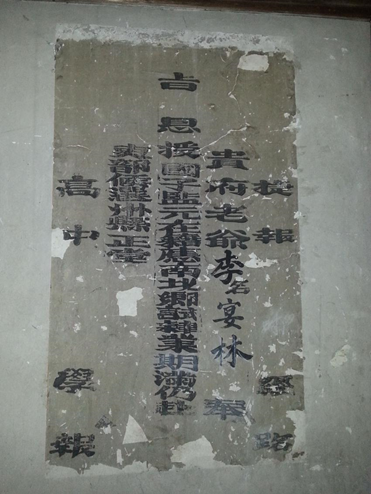 捷報 路
貴府老爺李名宴林 奉
旨恩授國子監元在籍應南北鄉試肄業期滿仍赴
吏部候選州縣正堂
高中 學報